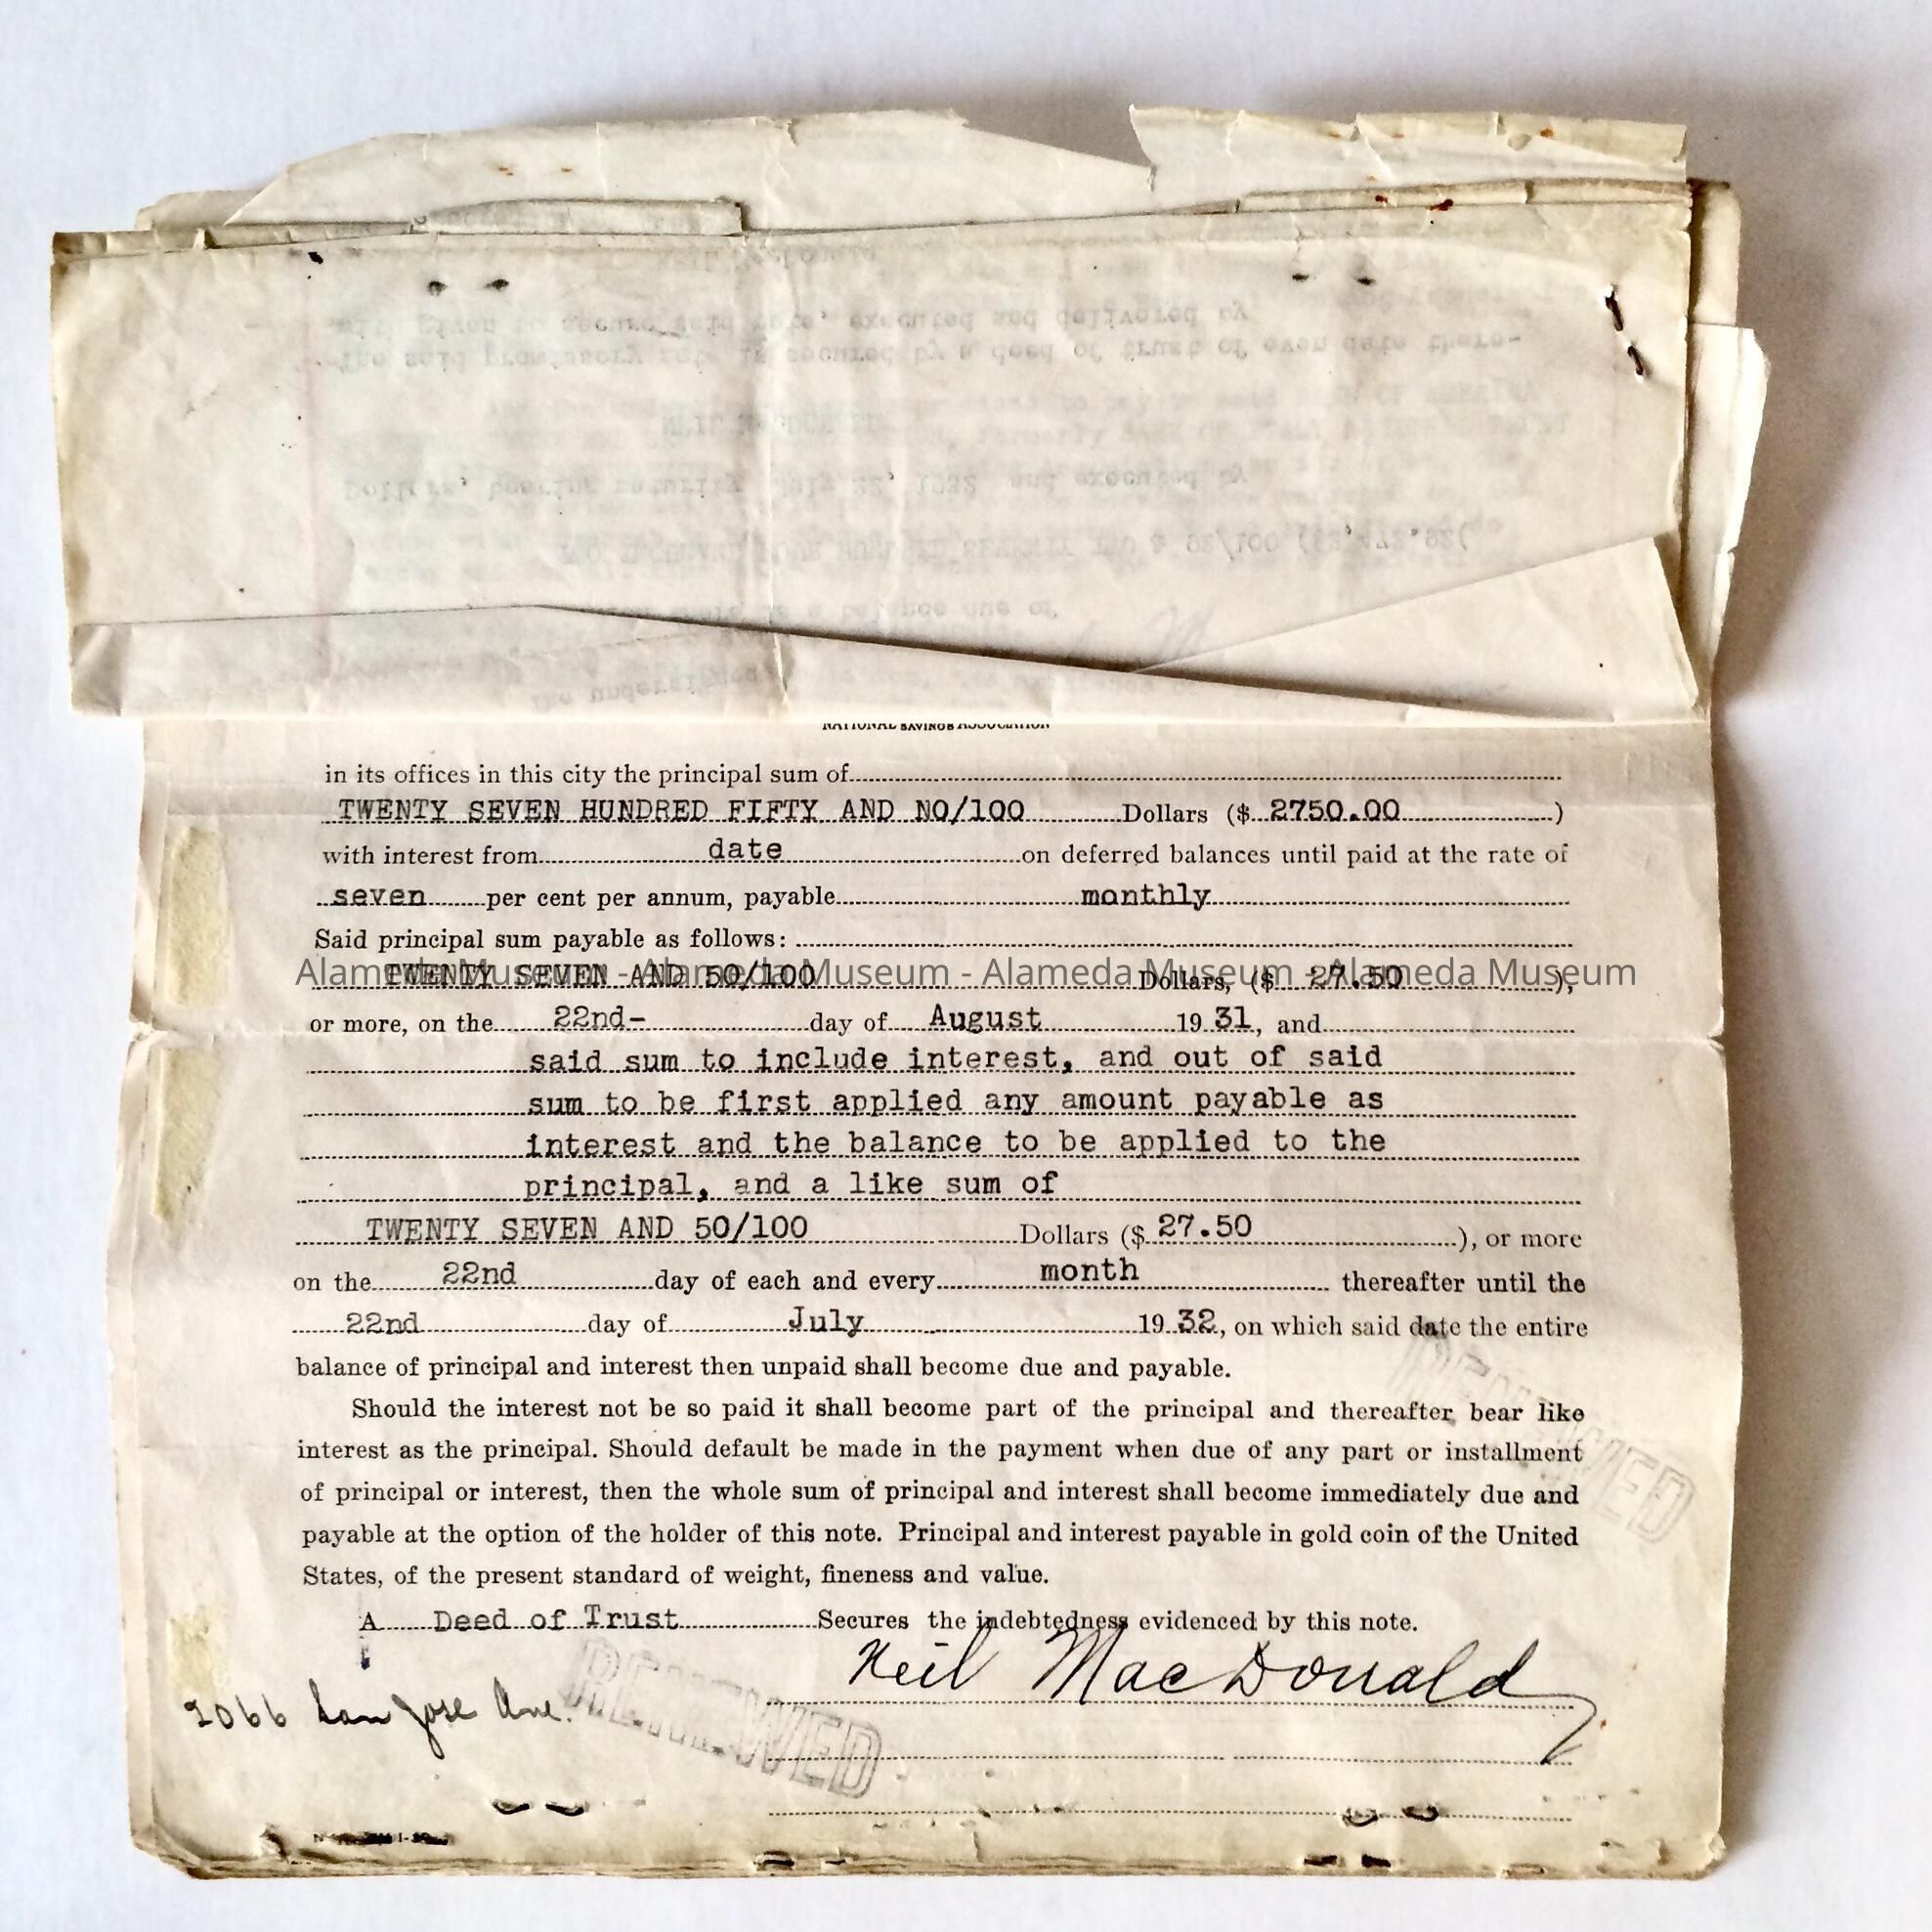 NATIONAL SAVINGS ASSOCIATION
in its offices in this city the principal sum of
TWENTY SEVEN HUNDRED FIFTY AND NO/100 Dollars ($ 2750.00 )
with interest from date on deferred balances until paid at the rate of
seven per cent per annum, payable monthly
Said principal sum payable as follows:
Alameda Museum - Alameda Museum - Alameda Museum - Alameda Museum
TWENTY SEVEN AND 50/100 Dollars, ($ 27.50 ),
or more, on the 22nd- day of August 19 31, and
said sum to include interest, and out of said
sum to be first applied any amount payable as
interest and the balance to be applied to the
principal, and a like sum of
TWENTY SEVEN AND 50/100 Dollars ($ 27.50 ), or more
on the 22nd day of each and every month thereafter until the
22nd day of July 19 32, on which said date the entire
balance of principal and interest then unpaid shall become due and payable.
Should the interest not be so paid it shall become part of the principal and thereafter bear like
interest as the principal. Should default be made in the payment when due of any part or installment
of principal or interest, then the whole sum of principal and interest shall become immediately due and
payable at the option of the holder of this note. Principal and interest payable in gold coin of the United
States, of the present standard of weight, fineness and value.
RENEWED
A Deed of Trust Secures the indebtedness evidenced by this note.
Neil MacDonald
2066 San Jose Ave.
RENEWED